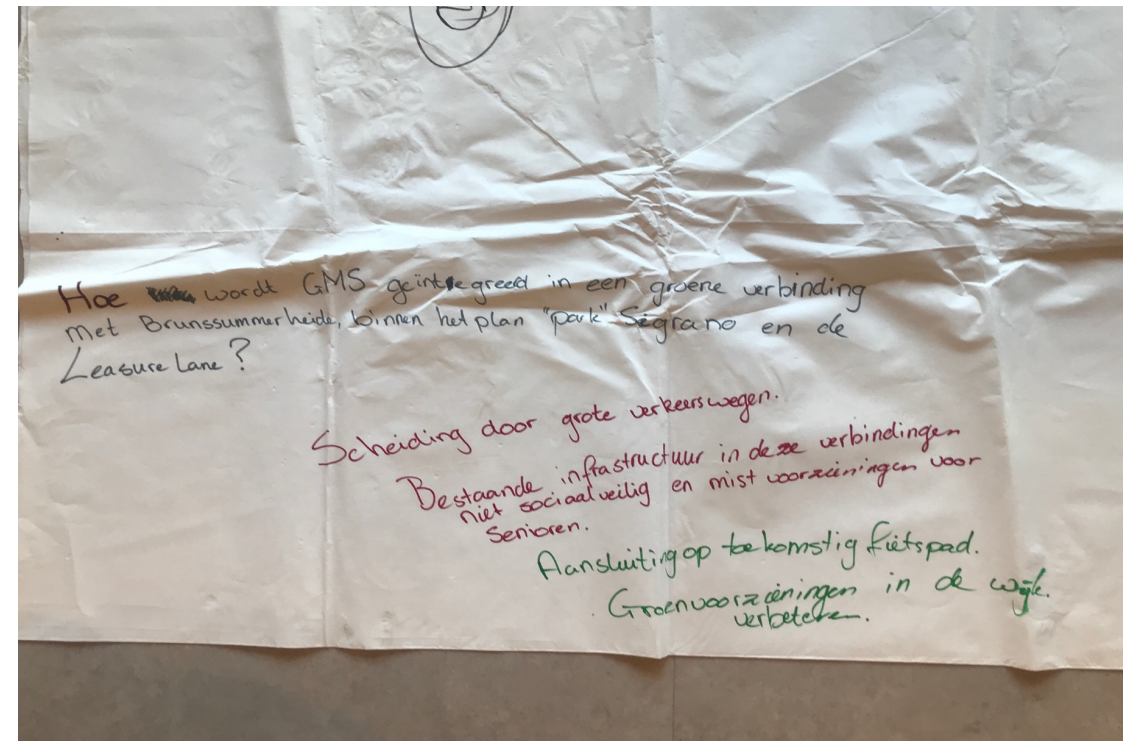 Hoe wordt GMS geïntegreerd in een groene verbinding
met Brunssummerheide, binnen het plan "park" Segrano en de
Leasure Lane?
Scheiding door grote verkeerswegen.
Bestaande infrastructuur in deze verbindingen
niet sociaal veilig en mist voorzieningen voor
Senioren.
Aansluiting op toekomstig fietspad.
Groenvoorzieningen in de wijk.
verbeteren.